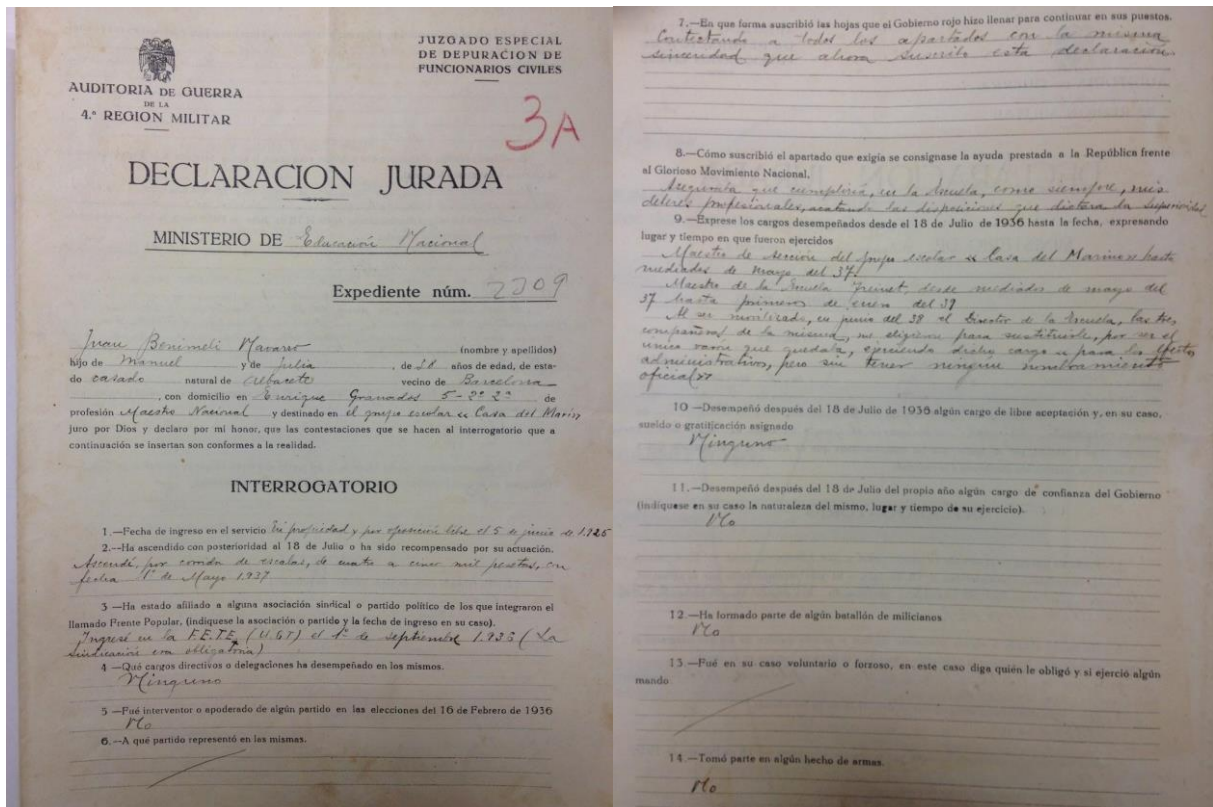 AUDITORIA DE GUERRA
DE LA
4.ª REGION MILITAR
JUZGADO ESPECIAL
DE DEPURACION DE
FUNCIONARIOS CIVILES
3A
DECLARACION JURADA
MINISTERIO DE Educación Nacional
Expediente núm. 2209
Juan Benimeli Navarro (nombre y apellidos)
hijo de Manuel y de Julia, de 38 años de edad, de esta-
do casado natural de Albacete vecino de Barcelona
, con domicilio en Enrique Granados 5-2º 2ª de
profesión Maestro Nacional y destinado en el grupo escolar "Casa del Marino,
juro por Dios y declaro por mi honor, que las contestaciones que se hacen al interrogatorio que a
continuación se insertan son conformes a la realidad.
INTERROGATORIO
1.—Fecha de ingreso en el servicio En propiedad y por oposición libre el 5 de junio de 1.925
2.—Ha ascendido con posterioridad al 18 de Julio o ha sido recompensado por su actuación.
Ascendí, por corrida de escalas, de cuatro a cinco mil pesetas, con
fecha 1º de Mayo 1.937
3—Ha estado afiliado a alguna asociación sindical o partido político de los que integraron el
llamado Frente Popular, (indíquese la asociación o partido y la fecha de ingreso en su caso).
Ingresé en la F.E.T.E. (U.G.T) el 1º de septiembre 1.936 (La
sindicación era obligatoria)
4—Qué cargos directivos o delegaciones ha desempeñado en los mismos.
Ninguno
5—Fué interventor o apoderado de algún partido en las elecciones del 16 de Febrero de 1936
No
6.—A qué partido representó en las mismas.
7.—En que forma suscribió las hojas que el Gobierno rojo hizo llenar para continuar en sus puestos.
Contestando a todos los apartados con la misma
sinceridad que ahora suscribo esta declaración.
8.—Cómo suscribió el apartado que exigía se consignase la ayuda prestada a la República frente
al Glorioso Movimiento Nacional.
Aseguraba que cumpliría, en la Escuela, como siempre, mis
deberes profesionales, acatando las disposiciones que dictara la Superioridad
9.—Exprese los cargos desempeñados desde el 18 de Julio de 1936 hasta la fecha, expresando
lugar y tiempo en que fueron ejercidos
Maestro de sección del grupo escolar "Casa del Marino" hasta
mediados de Mayo del 37.
Maestro de la Escuela Freinet, desde mediados de mayo del
37 hasta primeros de enero del 39
Al ser movilizado, en junio del 38 el Director de la Escuela, las tres
compañeras de la misma, me eligieron para sustituirle, por ser el
único varón que quedaba, ejerciendo dicho cargo "para los efectos
administrativos, pero sin tener ningún nombramiento
oficial"
10—Desempeñó después del 18 de Julio de 1936 algún cargo de libre aceptación y, en su caso,
sueldo o gratificación asignado
Ninguno
11.—Desempeñó después del 18 de Julio del propio año algún cargo de confianza del Gobierno
(indíquese en su caso la naturaleza del mismo, lugar y tiempo de su ejercicio).
No
12.—Ha formado parte de algún batallón de milicianos
No
13.—Fué en su caso voluntario o forzoso, en este caso diga quién le obligó y si ejerció algún
mando
14.—Tomó parte en algún hecho de armas.
No